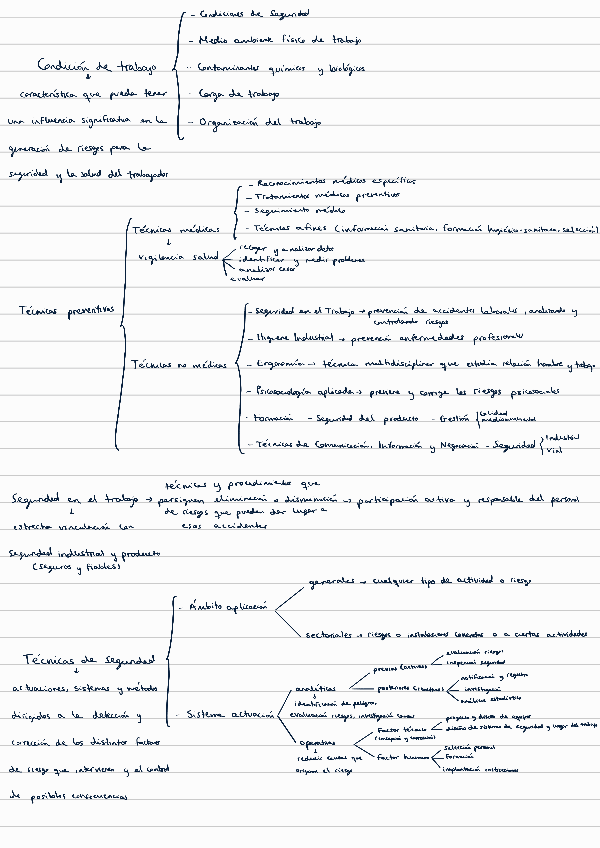 - Condiciones de Seguridad
- Medio ambiente físico de trabajo
Condición de trabajo
- Contaminantes químicos y biológicos
característica que pueda tener
- Carga de trabajo
una influencia significativa en la
- Organización del trabajo
generación de riesgos para la
seguridad y la salud del trabajador
- Reconocimientos médicos específicos
- Tratamientos médicos preventivos
- Seguimiento médico
Técnicas médicas
- Técnicas afines (información sanitaria, formación higiénico-sanitaria, selección)
vigilancia salud
recoger y analizar datos
identificar y medir problemas
analizar
evaluar
Técnicas preventivas
- Seguridad en el Trabajo → prevención de accidentes laborales, analizando y
controlando riesgos
- Higiene Industrial → prevención enfermedades profesionales
Técnicas no médicas
- Ergonomía → técnica multidisciplinar que estudia relación hombre y trabajo
- Psicosociología aplicada → previene y corrige los riesgos psicosociales
- Formación - Seguridad del producto - Gestión
calidad
medioambiental
- Técnicas de Comunicación, Información y Negociación - Seguridad
Industrial
Vial
técnicas y procedimientos que
Seguridad en el trabajo → persiguen eliminación o disminución → participación activa y responsable del personal
de riesgos que pueden dar lugar a
estrecha vinculación con
esos accidentes
Seguridad industrial y producto
(seguros y fiables)
generales → cualquier tipo de actividad o riesgo
- Ámbito aplicación
sectoriales → riesgos o instalaciones concretas o a ciertas actividades
Técnicas de seguridad
actuaciones, sistemas y métodos
dirigidos a la detección y
corrección de los distintos factores
de riesgo que intervienen y al control
de posibles consecuencias
- Sistema actuación
analíticas
identificación de peligros,
evaluación riesgos, investigación causas
evaluación riesgos
inspección seguridad
notificación y registro
investigación
análisis estadístico
operativas
reducir causas que
originan el riesgo
Factor técnico
(concepción y corrección)
proyecto y diseño de equipos
diseño de sistemas de seguridad y lugar del trabajo
Factor humano
Selección personal
Formación